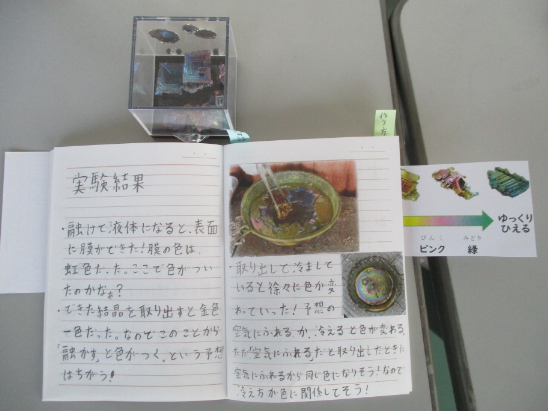 実験結果
・融けて液体になると、表面
に膜ができた!膜の色は、
虹色だった。ここで色がつい
たのかなぁ?
・できた結晶を取り出すと金色
一色だった。なのでこのことから
「融かす」と色がつく、という予想
はちがう!
・取り出して、冷まして
いると徐々に色が変
わっていった!予想の
「空気にふれる」か、「冷える」と色が変わる。
ただ「空気にふれる」だと取り出したときに
空気にふれるから同じ色になりそう!なので
冷え方が色に関係してそう!
ゆっくり
ひえる
ぴんく みどり
ピンク 緑